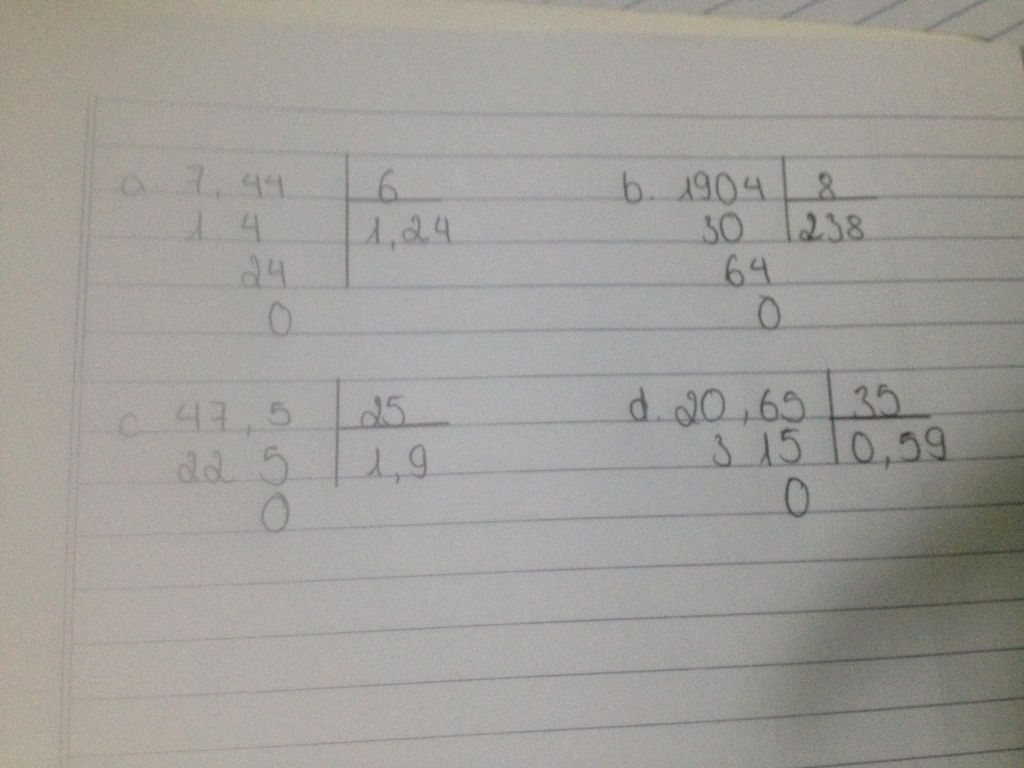 a. 7,44 | 6
1 4 | 1,24
24
0
b. 1904 | 8
30 | 238
64
0
c 47,5 | 25
22 5 | 1,9
0
d. 20,65 | 35
3 15 | 0,59
0